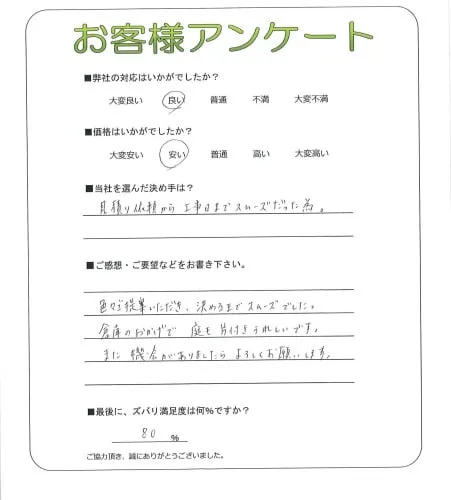 お客様アンケート
■弊社の対応はいかがでしたか?
大変良い 良い 普通 不満 大変不満
■価格はいかがでしたか?
大変安い 安い 普通 高い 大変高い
■当社を選んだ決め手は?
見積り依頼から工事日までスムーズだった為。
■ご感想・ご要望などをお書き下さい。
色々ご提案いただき、決めるまでスムーズでした。
倉庫のおかげで 庭も片付きうれしいです。
また機会がありましたらよろしくお願いします。
■最後に、ズバリ満足度は何%ですか?
80 %
ご協力頂き、誠にありがとうございました。